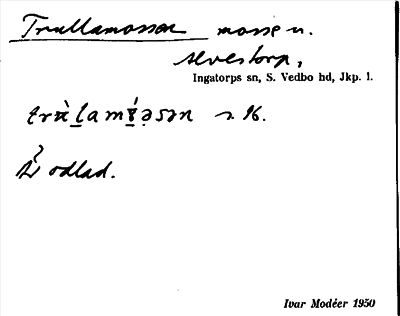 Trullamossen mosse n.
Alvestorp,
Ingatorps sn, S. Vedbo hd, Jkp. l.
odlad.
Ivar Modéer 1950